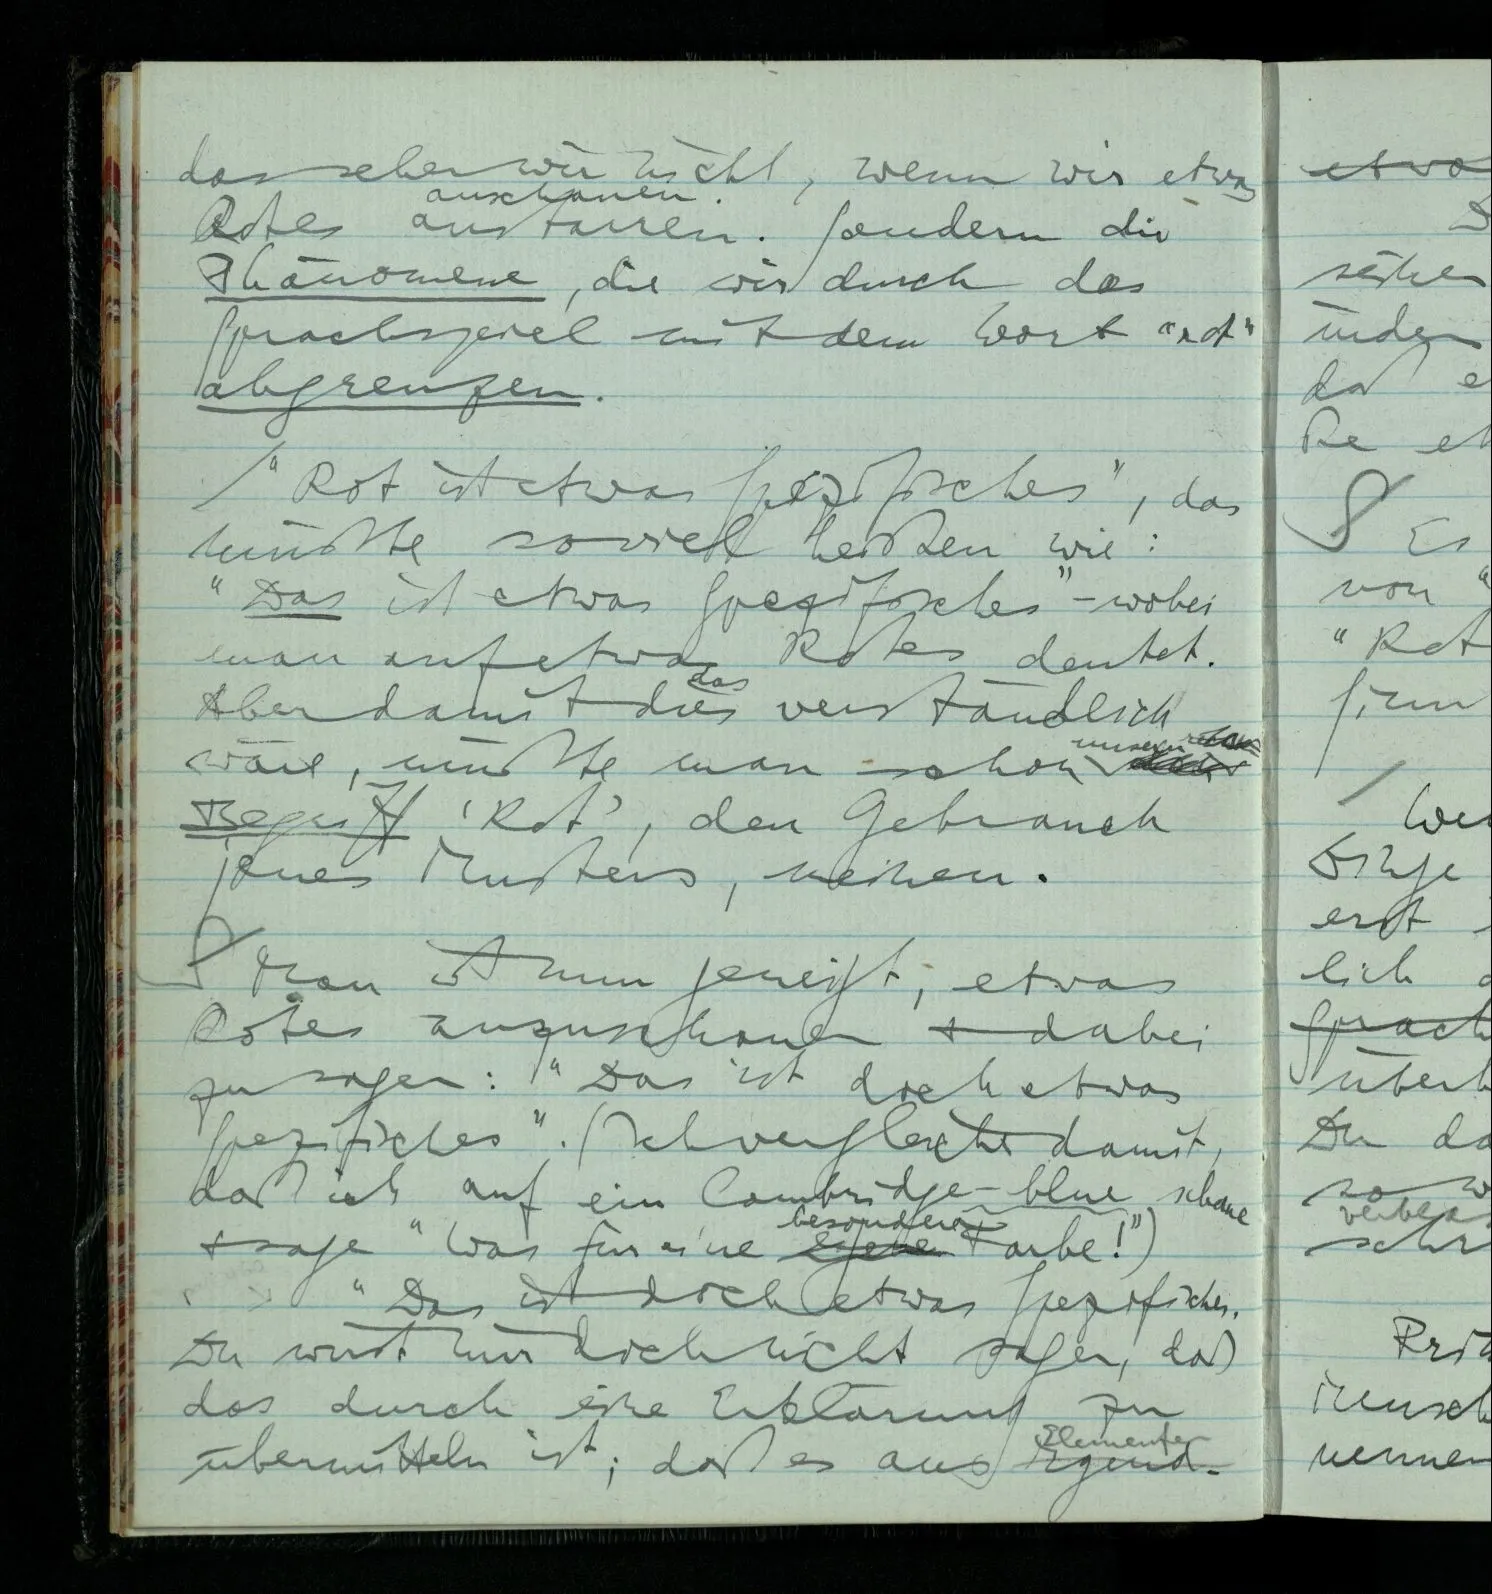 das sehen wir nicht, wenn wir etwas
anschauen.
Rotes anstarren. Sondern die
Phänomene, die wir durch das
Sprachspiel mit dem Wort "rot"
abgrenzen.
/ "Rot ist etwas Spezifisches", das
müßte soviel heißen wie:
"Das ist etwas Spezifisches" – wobei
man auf etwas Rotes deutet.
das
Aber damit dies verständlich
unsern
wäre, müßte man schon
Begriff 'Rot', den Gebrauch
jenes Musters, meinen.
Man ist nun geneigt, etwas
Rotes anzuschauen + dabei
zu sagen: "Das ist doch etwas
Spezifisches". (Ich vergleiche damit,
daß ich auf ein Cambridge-blue schaue
besondere
+ sage "Was für eine eigene Farbe!")
"Das ist doch etwas Spezifisches.
Du wirst mir doch nicht sagen, daß
das durch eine Erklärung zu
Elementen
übermitteln ist; daß es aus irgend-
etwa
indem
daß e
von "
"Rot
erst
lich
Sprach
überh
Du da
so w
Mensch
nennen